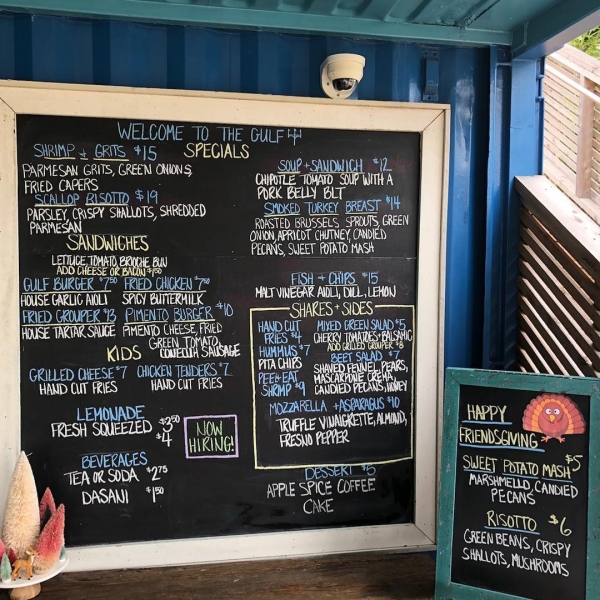 WELCOME TO THE GULF
SPECIALS
SHRIMP + GRITS $15
PARMESAN GRITS, GREEN ONIONS,
FRIED CAPERS
SCALLOP RISOTTO $19
PARSLEY, CRISPY SHALLOTS, SHREDDED
PARMESAN
SOUP + SANDWICH $12
CHIPOTLE TOMATO SOUP WITH A
PORK BELLY BLT
SMOKED TURKEY BREAST $14
ROASTED BRUSSELS SPROUTS, GREEN
ONION, APRICOT CHUTNEY, CANDIED
PECANS, SWEET POTATO MASH
SANDWICHES
LETTUCE, TOMATO, BRIOCHE BUN
ADD CHEESE OR BACON $1.50
GULF BURGER $7.50
HOUSE GARLIC AIOLI
FRIED CHICKEN $7.50
SPICY BUTTERMILK
FRIED GROUPER $13
HOUSE TARTAR SAUCE
PIMENTO BURGER $10
PIMENTO CHEESE, FRIED
GREEN TOMATO,
CONECUH SAUSAGE
KIDS
GRILLED CHEESE $7
HAND CUT FRIES
CHICKEN TENDERS $7
HAND CUT FRIES
LEMONADE
FRESH SQUEEZED $2.50
$4
NOW
HIRING!
BEVERAGES
TEA OR SODA $2.75
DASANI $1.50
FISH + CHIPS $15
MALT VINEGAR AIOLI, DILL, LEMON
SHARES + SIDES
HAND CUT
FRIES $4
HUMMUS $7
PITA CHIPS
PEEL + EAT
SHRIMP $9
MIXED GREEN SALAD $5
CHERRY TOMATOES + BALSAMIC
ADD GRILLED GROUPER $8
BEET SALAD $7
SHAVED FENNEL, PEARS,
MASCARPONE CREMA,
CANDIED PECANS, HONEY
MOZZARELLA + ASPARAGUS $10
TRUFFLE VINAIGRETTE, ALMOND,
FRESNO PEPPER
DESSERT $5
APPLE SPICE COFFEE
CAKE
HAPPY
FRIENDSGIVING
SWEET POTATO MASH $5
MARSHMELLO, CANDIED
PECANS
RISOTTO $6
GREEN BEANS, CRISPY
SHALLOTS, MUSHROOMS